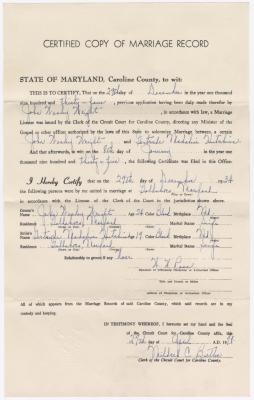 CERTIFIED COPY OF MARRIAGE RECORD
STATE OF MARYLAND, Caroline County, to wit:
THIS IS TO CERTIFY, That on the 29th day of December in the year one thousand
nine hundred and thirty-four, previous application having been duly made therefor by
John Wesley Wright, in accordance with law, a Marriage
License was issued by the Clerk of the Circuit Court for Caroline County, directing any Minister of the
Gospel or other officer authorized by the laws of this State to solemnize Marriage between a certain
John Wesley Wright and Gertrude Madeline Hutchins
And that afterwards, to wit: on the 8th day of January in the year one
thousand nine hundred and thirty-five, the following Certificate was filed in this Office:
I Hereby Certify that on the 29th day of December 1934
the following persons were by me united in marriage at Goldsboro Maryland
in accordance with the License of the Clerk of the Jurisdiction above shown.
Groom's Name John Wesley Wright Age 24 Color Col'd. Birthplace Md.
Residence Goldsboro Maryland Marital Status Single
Bride's Name Gertrude Madeline Hutchins Age 19 Color Col'd. Birthplace Md.
Residence Goldsboro Maryland Marital Status Single
Relationship to groom, if any none
Signature of Officiating Minister or Authorized Officer
Title and Church or Office
Address of Minister or Authorized Officer
All of which appears from the Marriage Records of said Caroline County, which said records are in my
custody and keeping.
IN TESTIMONY WHEREOF, I hereunto set my hand and the Seal
of the Circuit Court for Caroline County affix, this
27th day of April A.D. 19
Mildred C. Butler
Clerk of the Circuit Court for Caroline County.